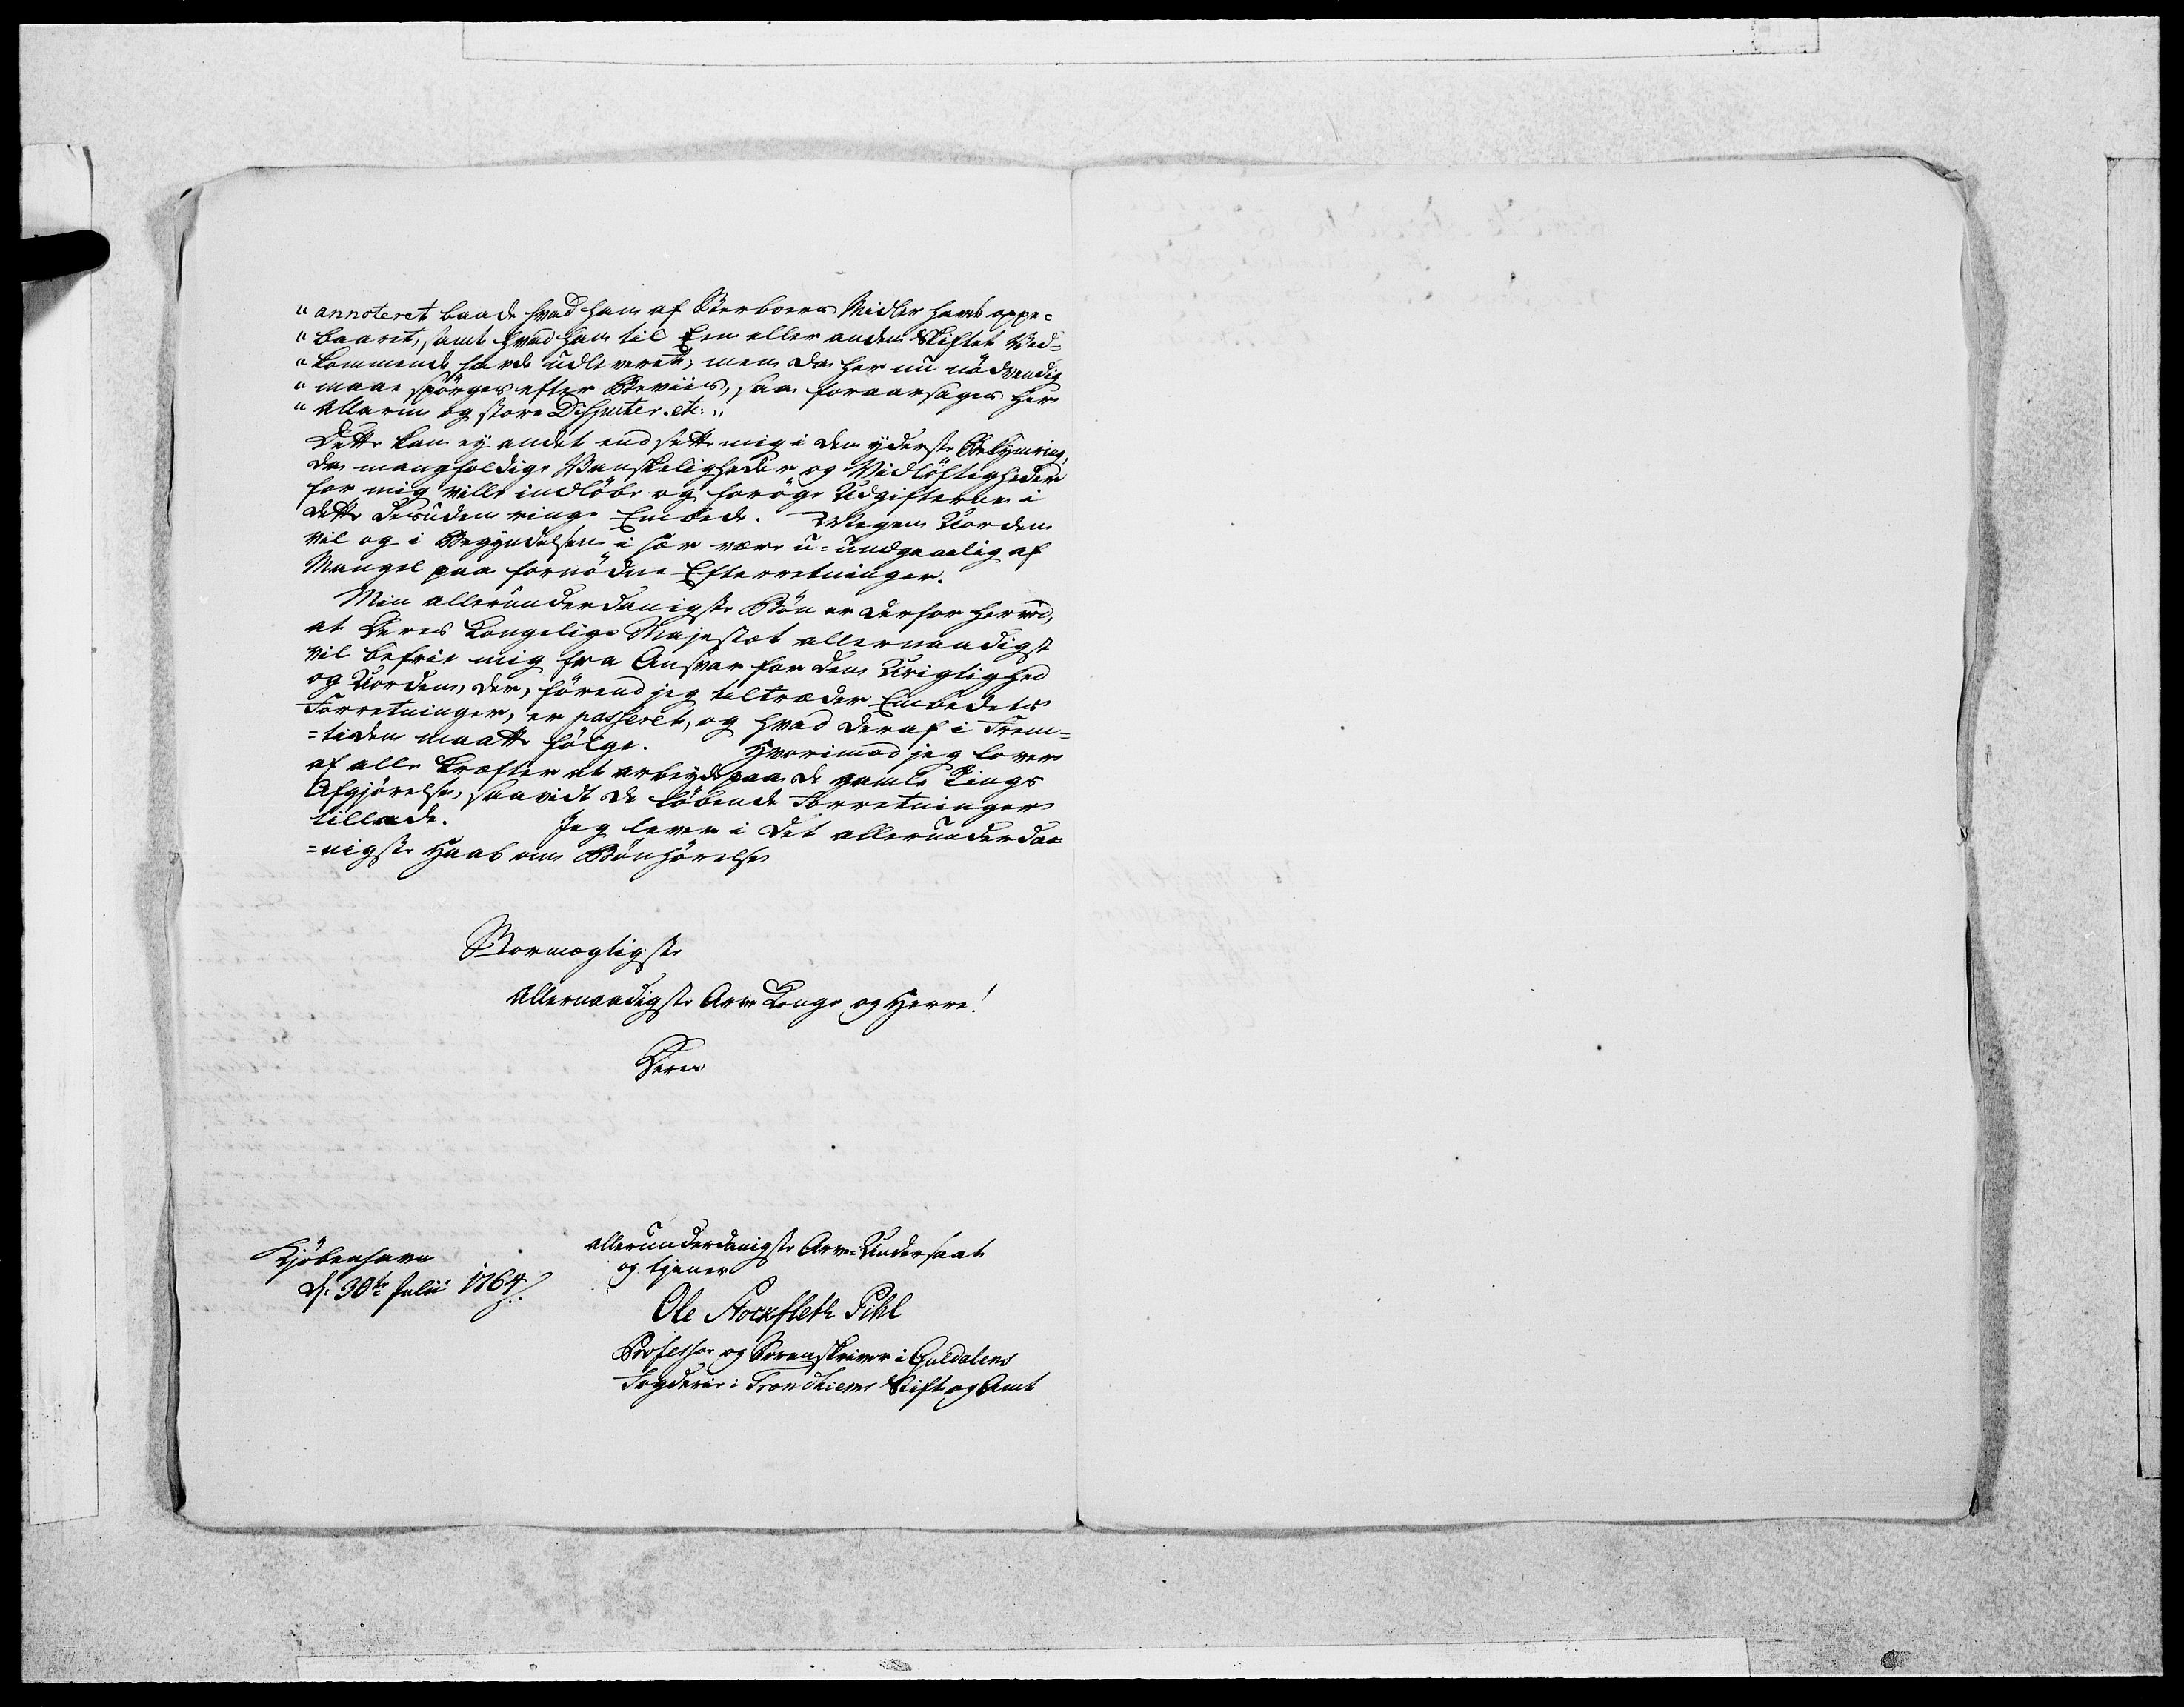 "annoteret baade hvad han af Sterboens Midler havde oppe=
"baaret, samt hvad han til Een eller anden Skiftet Ved=
"kommende havde udleveret; men da her nu nödvendig
"maae spörges efter Beviis, saa foraarsages her
"Allarm og store Disputer. etc:"
Dette kan ey andet end sette mig i den yderste Bekymring,
da mangfoldige Vanskeligheder og Vidlöftigheder
for mig ville indlöbe og foröge Udgifterne i
dette desuden ringe Embede. Megen Uorden
vil og i Begyndelsen i sær være u=undgaaelig af
Mangel paa fornödne Efterretninger.
Min allerunderdanigste Bön er derfor herved,
at Deres Kongelige Majestæt allernaadigst
vil befrie mig fra Ansvar for den Urigtighed
og Uorden, der, förend jeg tiltræder Embedets
Forretninger, er passeret, og hvad deraf i Frem=
=tiden maatte fölge. Hvorimod jeg lover
af alle Kræfter at arbeyde paa de gamle Tings
Afgjörelse, saavidt de löbende Forretninger
tillade. Jeg lever i det allerunderda=
=nigste Haab om Bönhörelse
Stormægtigste
Allernaadigste Arve Konge og Herre!
Deres
Kjöbenhavn
d. 30te Julii 1764.
allerunderdanigste Arve=Undersaat
og tjener
Ole Stockfleth Pihl
Professor og Sorenskriver i Guldalens
Fogderie i Trondhiems Stift og Amt